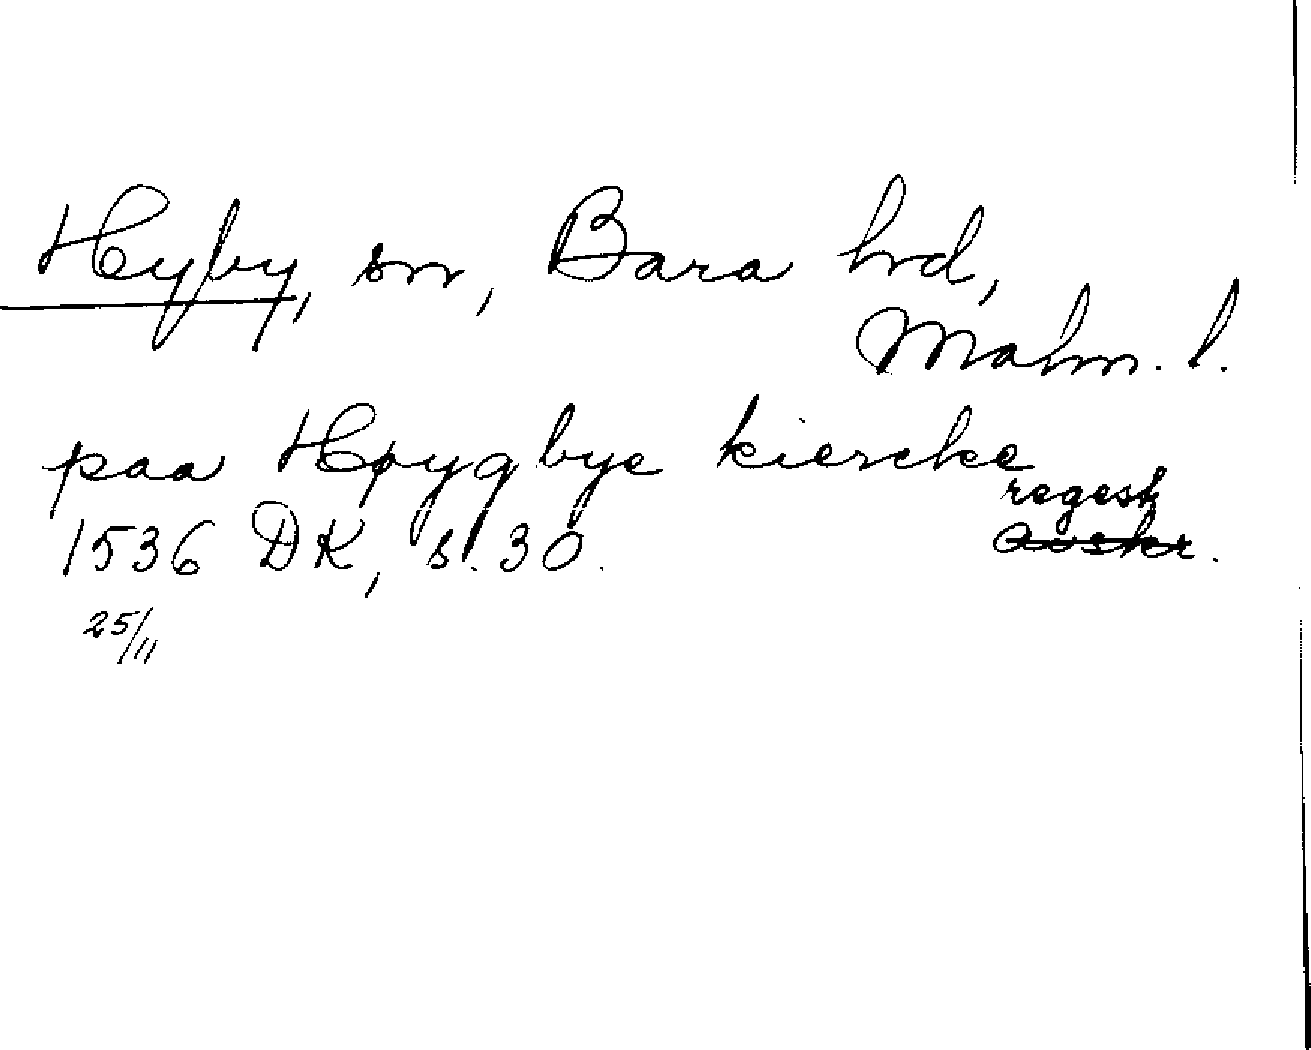 Hyby, sn, Bara hd,
Malm. l.
paa Høygbye kiercke
regest
1536 DK, s. 30. avskr.
25/11